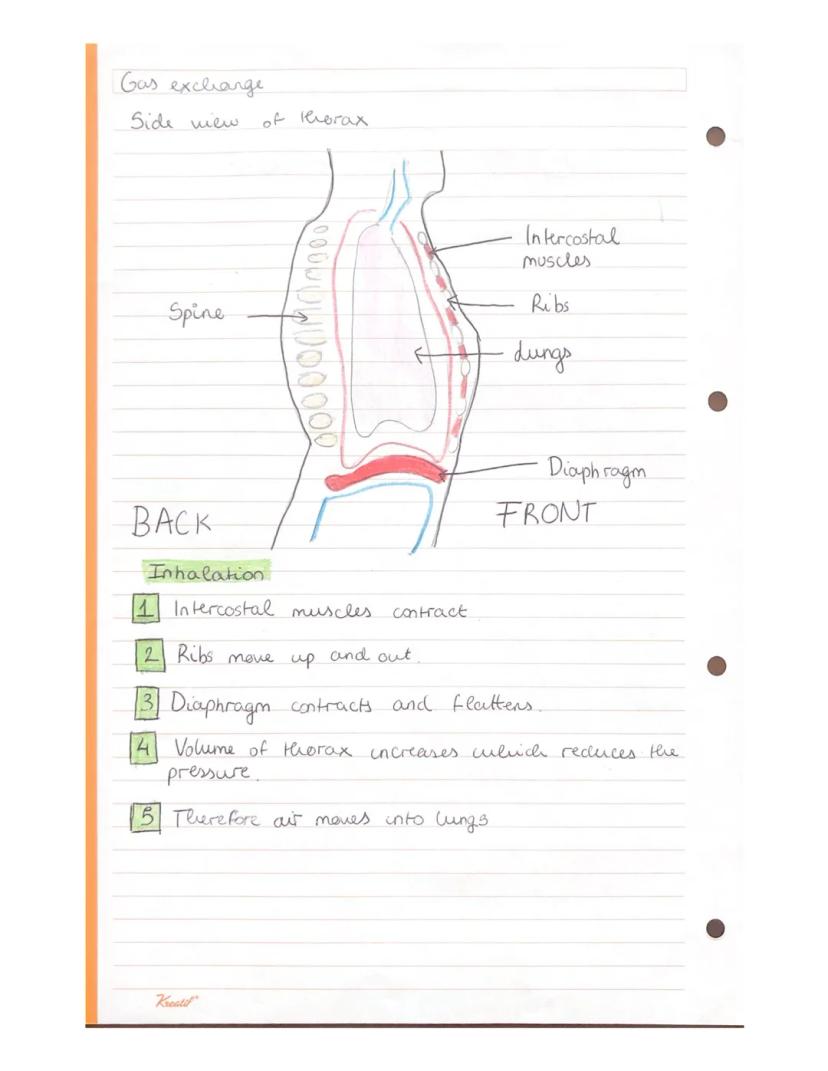 Gas exchange
Side view of thorax
Intercostal
muscles
Ribs
Spine
Lungs
Diaphragm
BACK
FRONT
Inhalation
1 Intercostal muscles contract
2 Ribs move up and out.
3 Diaphragm contracts and flattens.
4 Volume of thorax increases which reduces the
pressure.
5 Therefore air moves into lungs
Kreatif